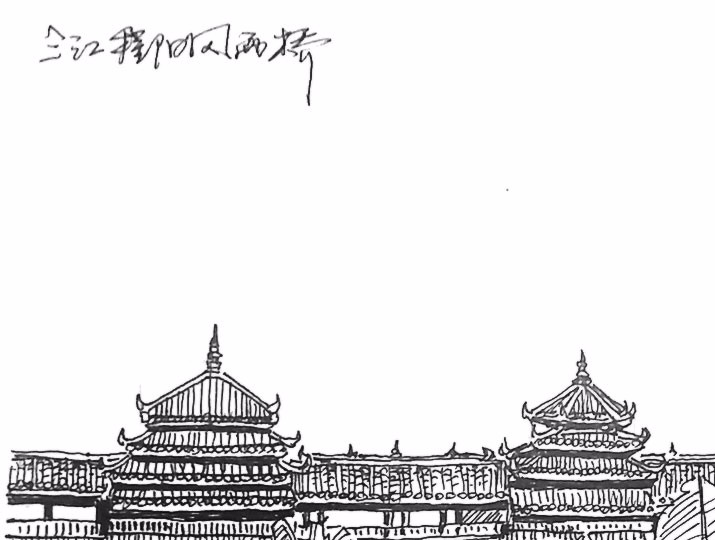 三江程阳风雨桥